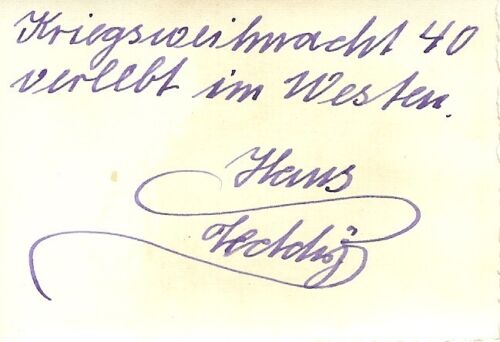 Kriegsweihnacht 40
verlebt im Westen.
Hans